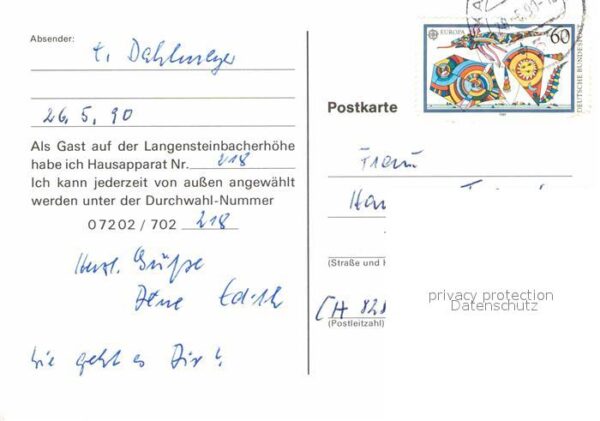 Absender: E. Dahlmeyer
26.5.90
Als Gast auf der Langensteinbacherhöhe
habe ich Hausapparat Nr. 218
Ich kann jederzeit von außen angewählt
werden unter der Durchwahl-Nummer
07202 / 702 218
Herzl. Grüße
Deine Edith
Wie geht es Dir?
EUROPA 60
DEUTSCHE BUNDESPOST
Postkarte
Frau
(Straße und H
(Postleitzahl)
privacy protection
Datenschutz